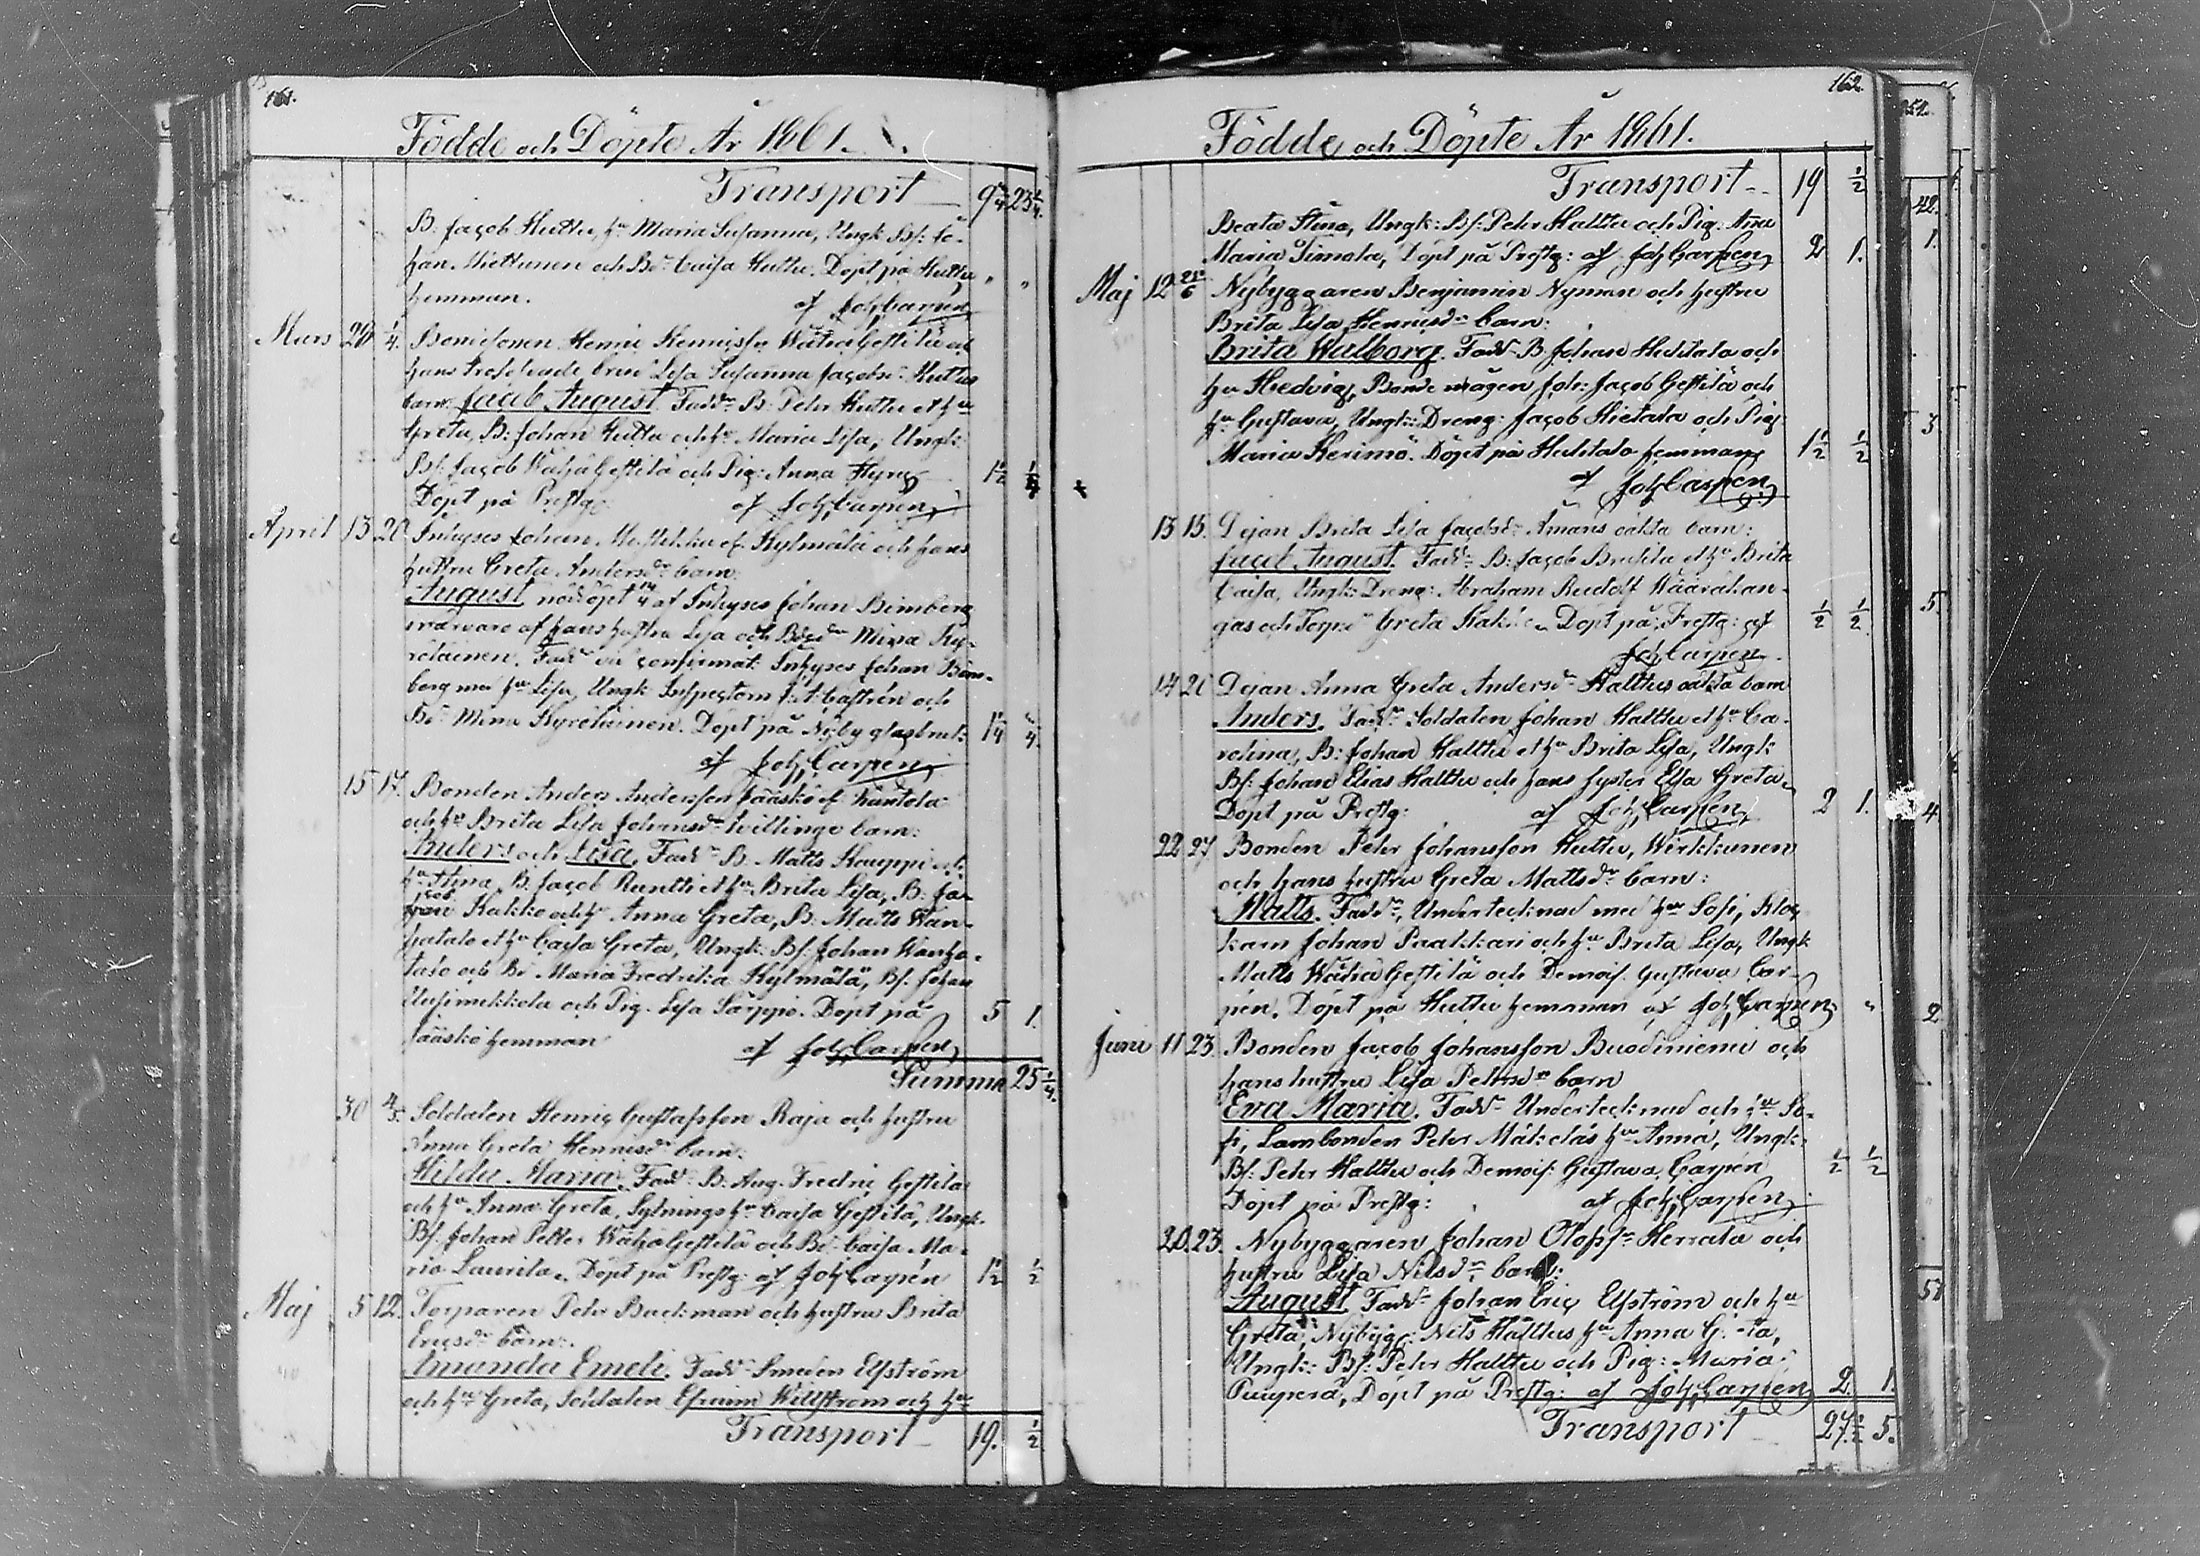 161.
Födde och Döpte År 1861.
Transport 9 3/4 23 1/4.
B: Jacob Huttu, hu Maria Susanna, Ungk: Bs: Jo-
han Miettunen och Bdr Caisa Huttu. Döpt på Huttu " "
hemman. af Joh Carpén
Mars 29 1/4. Bondesonen Henric Henricsson Wähä Gestilä och
hans trolofvade brud Lisa Susanna Jacobsdr Huttus
barn: Jacob August. Faddr B: Petter Huttu et hu
Greta, B: Johan Huttu och hu Maria Lisa, Ungk:
Bs: Jacob Wähä Gestilä och Pig: Anna Hyry 1 1/2 1/4
Döpt på Prestg: af Joh Carpén
April 13 20 Inhyses Johan Mustikka et. Kylmälä och hans
hustru Greta Andersdr barn:
August nöddöpt 14/4 af Inhyses Johan Bimberg
närvaro af hans hustru Lisa och Bdr Mina Ky-
röläinen. Faddr vid confirmat: Inhyses Johan Bim-
berg med hu Lisa, Ungk: Inspectorn F: A: Castrén och
Bdr Mina Kyröläinen. Döpt på Nyby glasbruk: 1 1/4 1/4.
af Joh Carpén
15 17. Bonden Anders Andersson Jääskö et.
och hu Brita Lisa Johansdr tvillinge barn:
Anders och Lisa, Faddr B. Matts Kauppi och
hu Stina, B. Jacob Runtti et hu Brita Lisa, B: Ja-
cob Kakko och hu Anna Greta, B. Matts Wan-
hatalo et hu Caisa Greta, Ungk: Bs: Johan Wanha-
talo och Bdr Maria Fredrika Kylmälä, Bs: Johan
Uusimikkola och Pig. Lisa Särppi. Döpt på 5 1.
Jääskö hemman af Joh Carpén
Summa 25 1/4.
30 4/5. Soldaten Henric Gustafsson Raja och hustru
Anna Greta Henricsdr barn:
Hilda Maria. Faddr B: Aug. Fredric Gestilä
och hu Anna Greta, Sytningshu Caisa Gestilä, Ungk.
Bs: Johan Petter Wähä Gestilä och Bdr Caisa Ma-
ria Laurila. Döpt på Prestg: af Joh Carpén 1 1/2 1/2
Maj 5 12. Torparen Petr Backman och hustru Brita
Ericsdr barn:
Amanda Emeli. Faddr Smeden Elfström
och hu Greta, Soldaten Efraim Willström och hu
Transport 19. 1/2
162.
Födde och Döpte År 1861.
Transport 19 1/2
Beata Stina, Ungk: Bs: Petr Halttu och Pig: Anna
Maria Timola, Döpt på Prestg: af Joh Carpén 2 1.
Maj 12 Nybyggaren Benjamin Nyman och hustru
Brita Lisa Henricsdr barn:
Brita Walborg. Faddr B. Johan Huhtala och
hu Hedvig, Bonde mågen Joh: Jacob Gestilä och
hu Gustava, Ungk: Dreng: Jacob Hietala och Pig
Maria Kerimö. Döpt på Huhtala hemman 1 1/2 1/2
af Joh Carpén
13 15. Dejan Brita Lisa Jacobsdr Åmans oäkta barn:
Jacob August. Faddr B: Jacob et hu Brita
Caisa, Ungk: Dreng: Abraham Rudolf Wääräkan-
gas och Greta Döpt på Prestg: af 1/2 1/2
Joh Carpén
14 20 Dejan Anna Greta Andersdr Halttus oäkta barn
Anders. Faddr Soldaten Johan Halttu et hu Ca-
rolina, B: Johan Halttu et hu Brita Lisa, Ungk:
Bs: Johan Elias Halttu och hans syster Elsa Greta.
Döpt på Prestg: af Joh Carpén 2 1.
22 27 Bonden Petr Johansson Huttu, Wirkkunen
och hans hustru Greta Mattsdr barn:
Matts. Faddr, Undertecknad med hu Sofi, Kloc-
karn Johan Paakkari och hu Brita Lisa, Ungk
Matts Wähä Gestilä och Demois. Gustava Car-
pén. Döpt på Huttu hemman af Joh Carpén "
Juni 11 23. Bonden Jacob Johansson Buodiniemi och
hans hustru Lisa Petersdr barn
Eva Maria. Faddr Undertecknad och hu So-
fi, Lambonden Petr Mäkeläs hu Anna, Ungk:
Bs: Petr Halttu och Demois: Gustava Carpén 1/2 1/2
Döpt på Prestg: af Joh Carpén
20. 23. Nybyggaren Johan Olofsson Herrala och
hustru Lisa Nilsdr barn:
August. Faddr Johan Eric Elfström och hu
Greta, Nybygg: Nils Halttus hu Anna G. -ta,
Ungk: Bs: Petr Halttu och Pig: Maria
Puuperä, Döpt på Prestg: af Joh Carpén 2. 1.
Transport 27 1/2 5.
42.
1.
3
5.
4
2
51